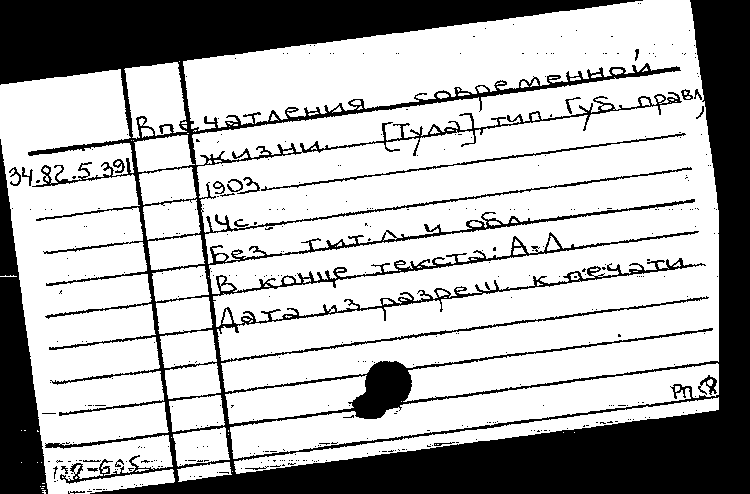 Впечатления современной
жизни. [Тула], тип. Губ. правл.,
34.82.5.391
1903.
14с.
Без тит.л. и обл.
В конце текста: А.Л.
Дата из разреш. к печати
РП 58
128-695